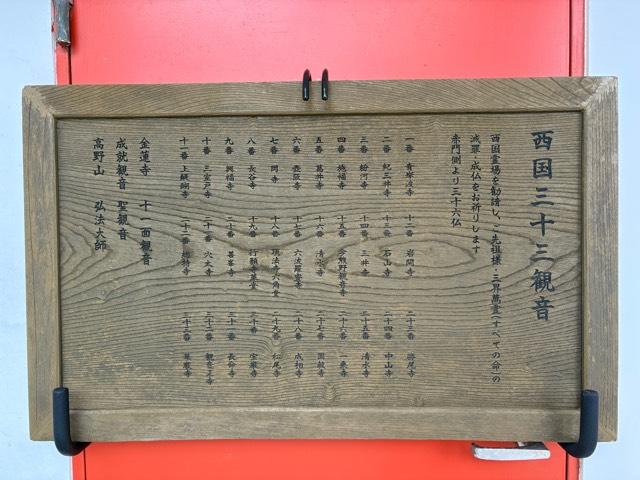 西国三十三観音
西国霊場を勧請し、ご先祖様・三界萬霊(すべての命)の
滅罪・成仏をお祈りします
赤門側より三十六仏
一番 青岸渡寺 十二番 岩間寺 二十三番 勝尾寺
二番 紀三井寺 十三番 石山寺 二十四番 中山寺
三番 粉河寺 十四番 三井寺 二十五番 清水寺
四番 施福寺 十五番 今熊野観音寺 二十六番 一乗寺
五番 葛井寺 十六番 清水寺 二十七番 圓教寺
六番 壺阪寺 十七番 六波羅蜜寺 二十八番 成相寺
七番 岡寺 十八番 頂法寺六角堂 二十九番 松尾寺
八番 長谷寺 十九番 行願寺革堂 三十番 宝厳寺
九番 興福寺 二十番 善峯寺 三十一番 長命寺
十番 三室戸寺 二十一番 穴太寺 三十二番 観音正寺
十一番 上醍醐寺 二十二番 総持寺 三十三番 華厳寺
金蓮寺 十一面観音
成就観音 聖観音
高野山 弘法大師